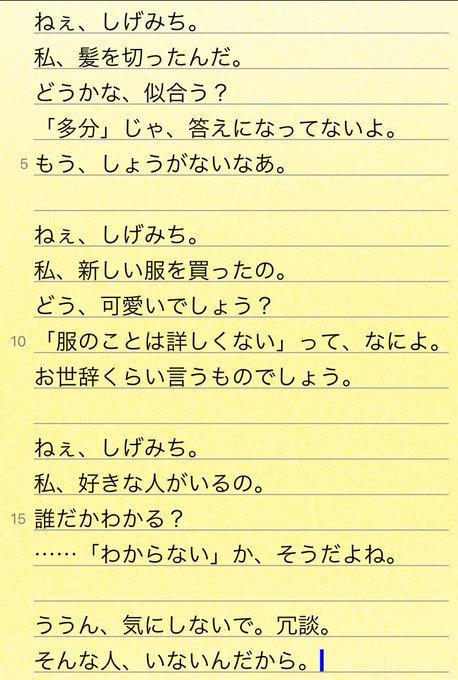 ねぇ、しげみち。
私、髪を切ったんだ。
どうかな、似合う？
「多分」じゃ、答えになってないよ。
5 もう、しょうがないなあ。
ねぇ、しげみち。
私、新しい服を買ったの。
どう、可愛いでしょう？
10 「服のことは詳しくない」って、なによ。
お世辞くらい言うものでしょう。
ねぇ、しげみち。
私、好きな人がいるの。
15 誰だかわかる？
……「わからない」か、そうだよね。
ううん、気にしないで。冗談。
そんな人、いないんだから。